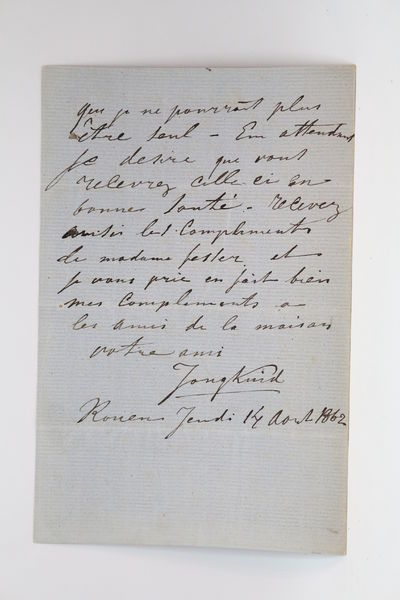 que je ne pourrait plus
être seul – En attendant
Je desire que vous
recevrez celle-ci en
bonne santé – recevez
aussi les Compliments
de madame fesser et
je vous prie en fait bien
mes Complements a
les amis de la maison
votre ami
Jongkind
Rouen Jeudi 14 Aout 1862